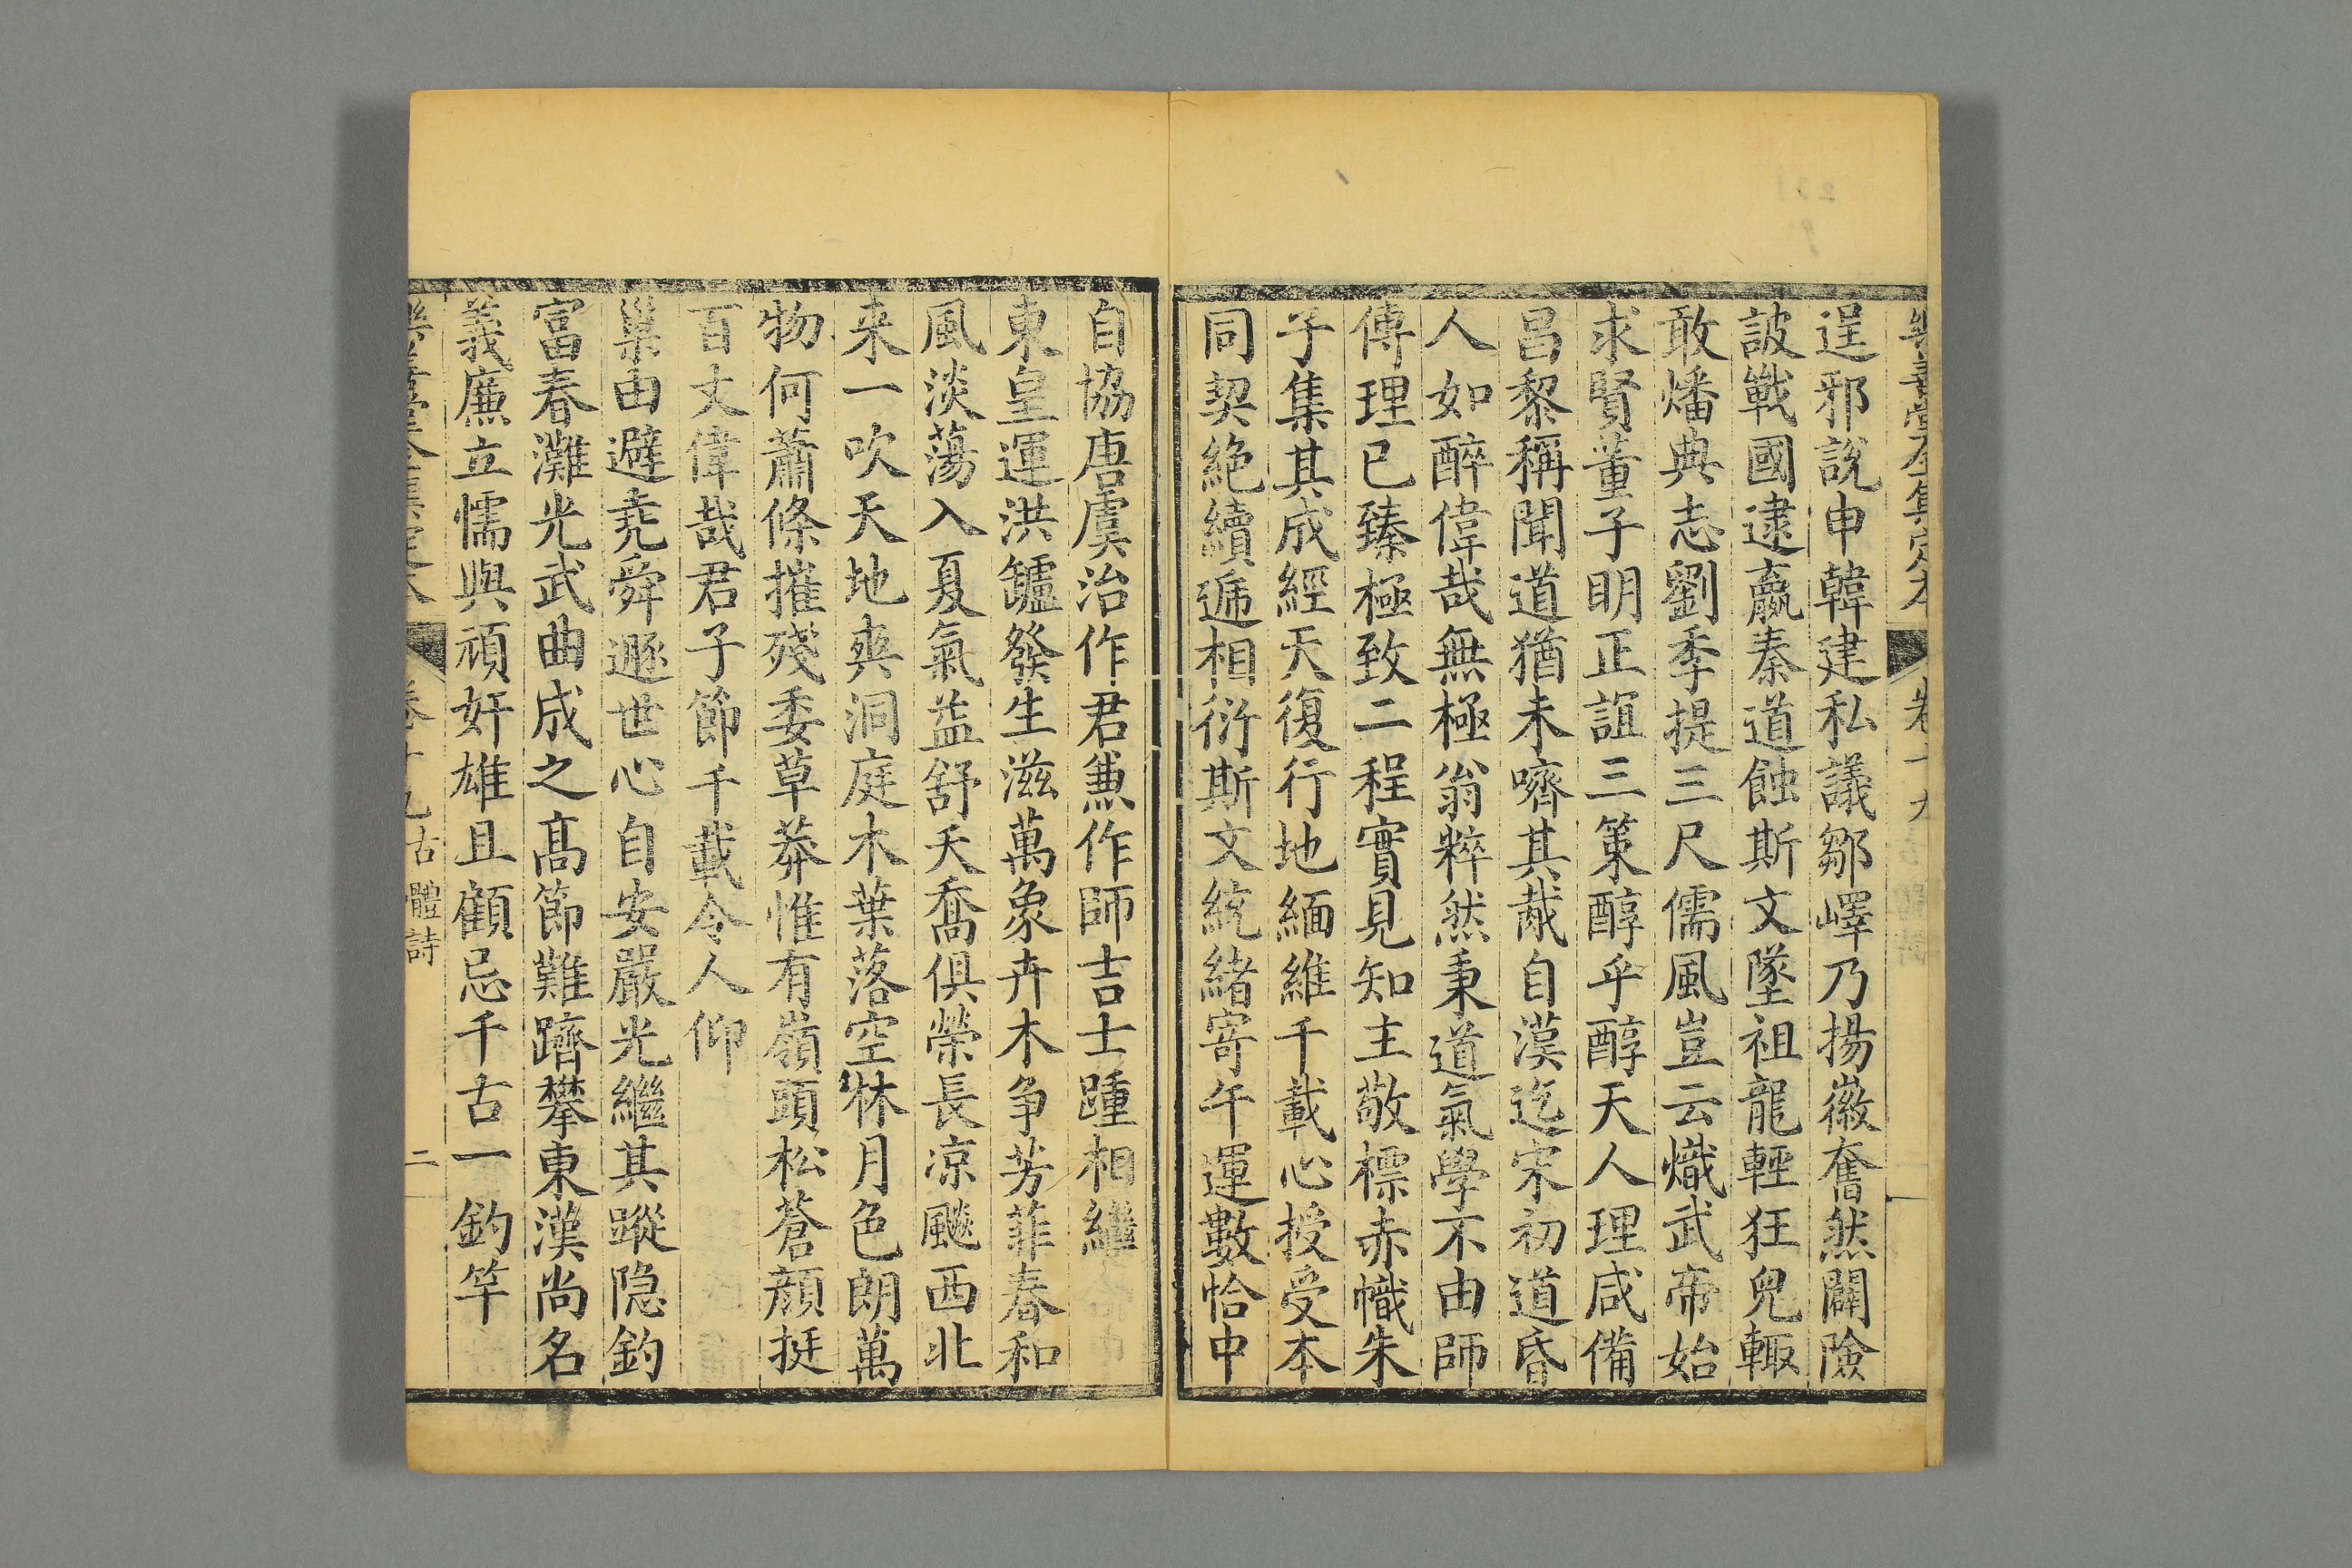 樂善堂全集定本 卷十九
逞邪說申韓建私議鄒嶧乃揚徽奮然闢險
詖戰國逮嬴秦道蝕斯文墜祖龍輕狂兒輙
敢燔典志劉季提三尺儒風豈云熾武帝始
求賢董子明正誼三策醇乎醇天人理咸備
昌黎稱聞道猶未嚌其胾自漢迄宋初道昏
人如醉偉哉無極翁粹然秉道氣學不由師
傳理已臻極致二程實見知主敬標赤幟朱
子集其成經天復行地緬維千載心授受本
同契絶續遞相衍斯文統緒寄午運數恰中
自協唐虞治作君兼作師吉士踵相繼
東皇運洪鑪發生滋萬象卉木争芳菲春和
風淡蕩入夏氣益舒夭喬俱榮長凉飈西北
来一吹天地爽洞庭木葉落空牀月色朗萬
物何蕭條摧殘委草莽惟有嶺頭松蒼顔挺
百丈偉哉君子節千載令人仰
巢由避堯舜遯世心自安嚴光繼其蹤隐釣
富春灘光武曲成之髙節難躋攀東漢尚名
義廉立懦與頑奸雄且顧忌千古一釣竿
樂善堂全集定本 卷十九 古體詩 二